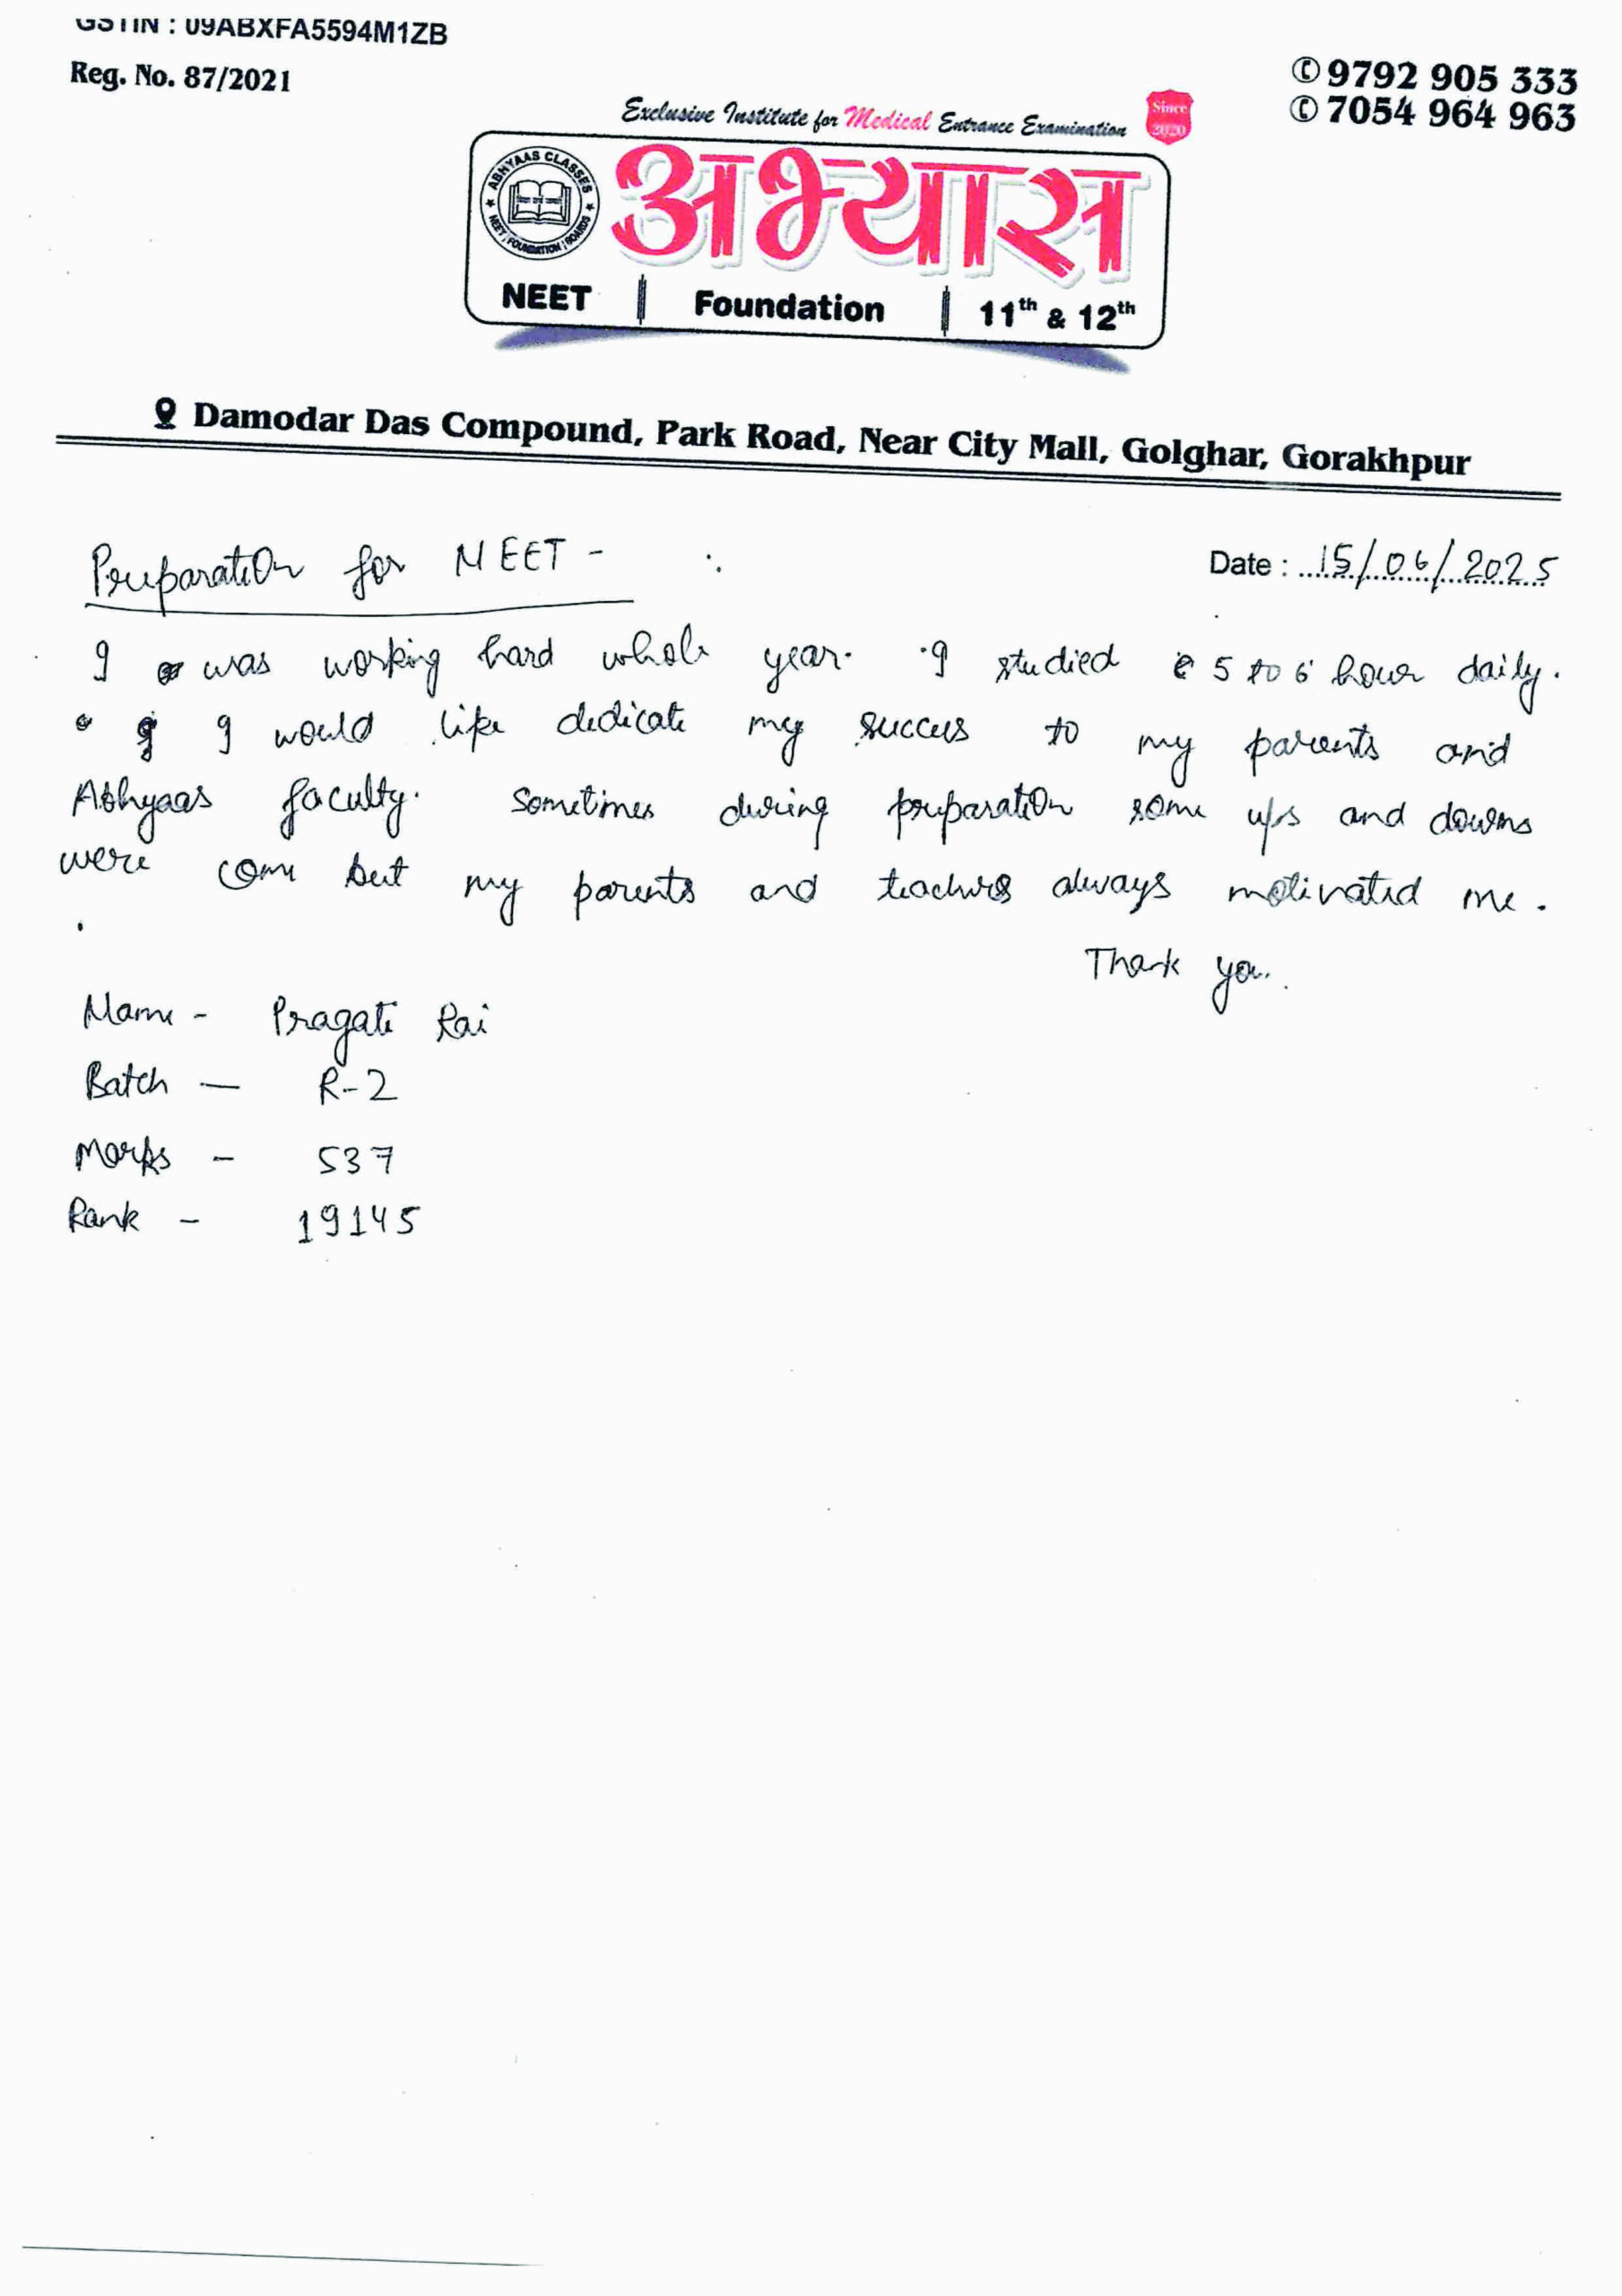 GSTIN : 09ABXFA5594M1ZB
Reg. No. 87/2021
✆ 9792 905 333
✆ 7054 964 963
Exclusive Institute for Medical Entrance Examination
Since 2020
ABHYAAS CLASSES
NEET, FOUNDATION, BOARDS
अभ्यास
NEET | Foundation | 11th & 12th
Damodar Das Compound, Park Road, Near City Mall, Golghar, Gorakhpur
Preparation for NEET -
Date : 15/06/2025
I was working hard whole year. I studied 5 to 6 hour daily.
I would like dedicate my success to my parents and
Abhyaas faculty. Sometimes during preparation some ups and downs
were come but my parents and teachers always motivated me.
Thank you.
Name - Pragati Rai
Batch — R-2
Marks - 537
Rank - 19145